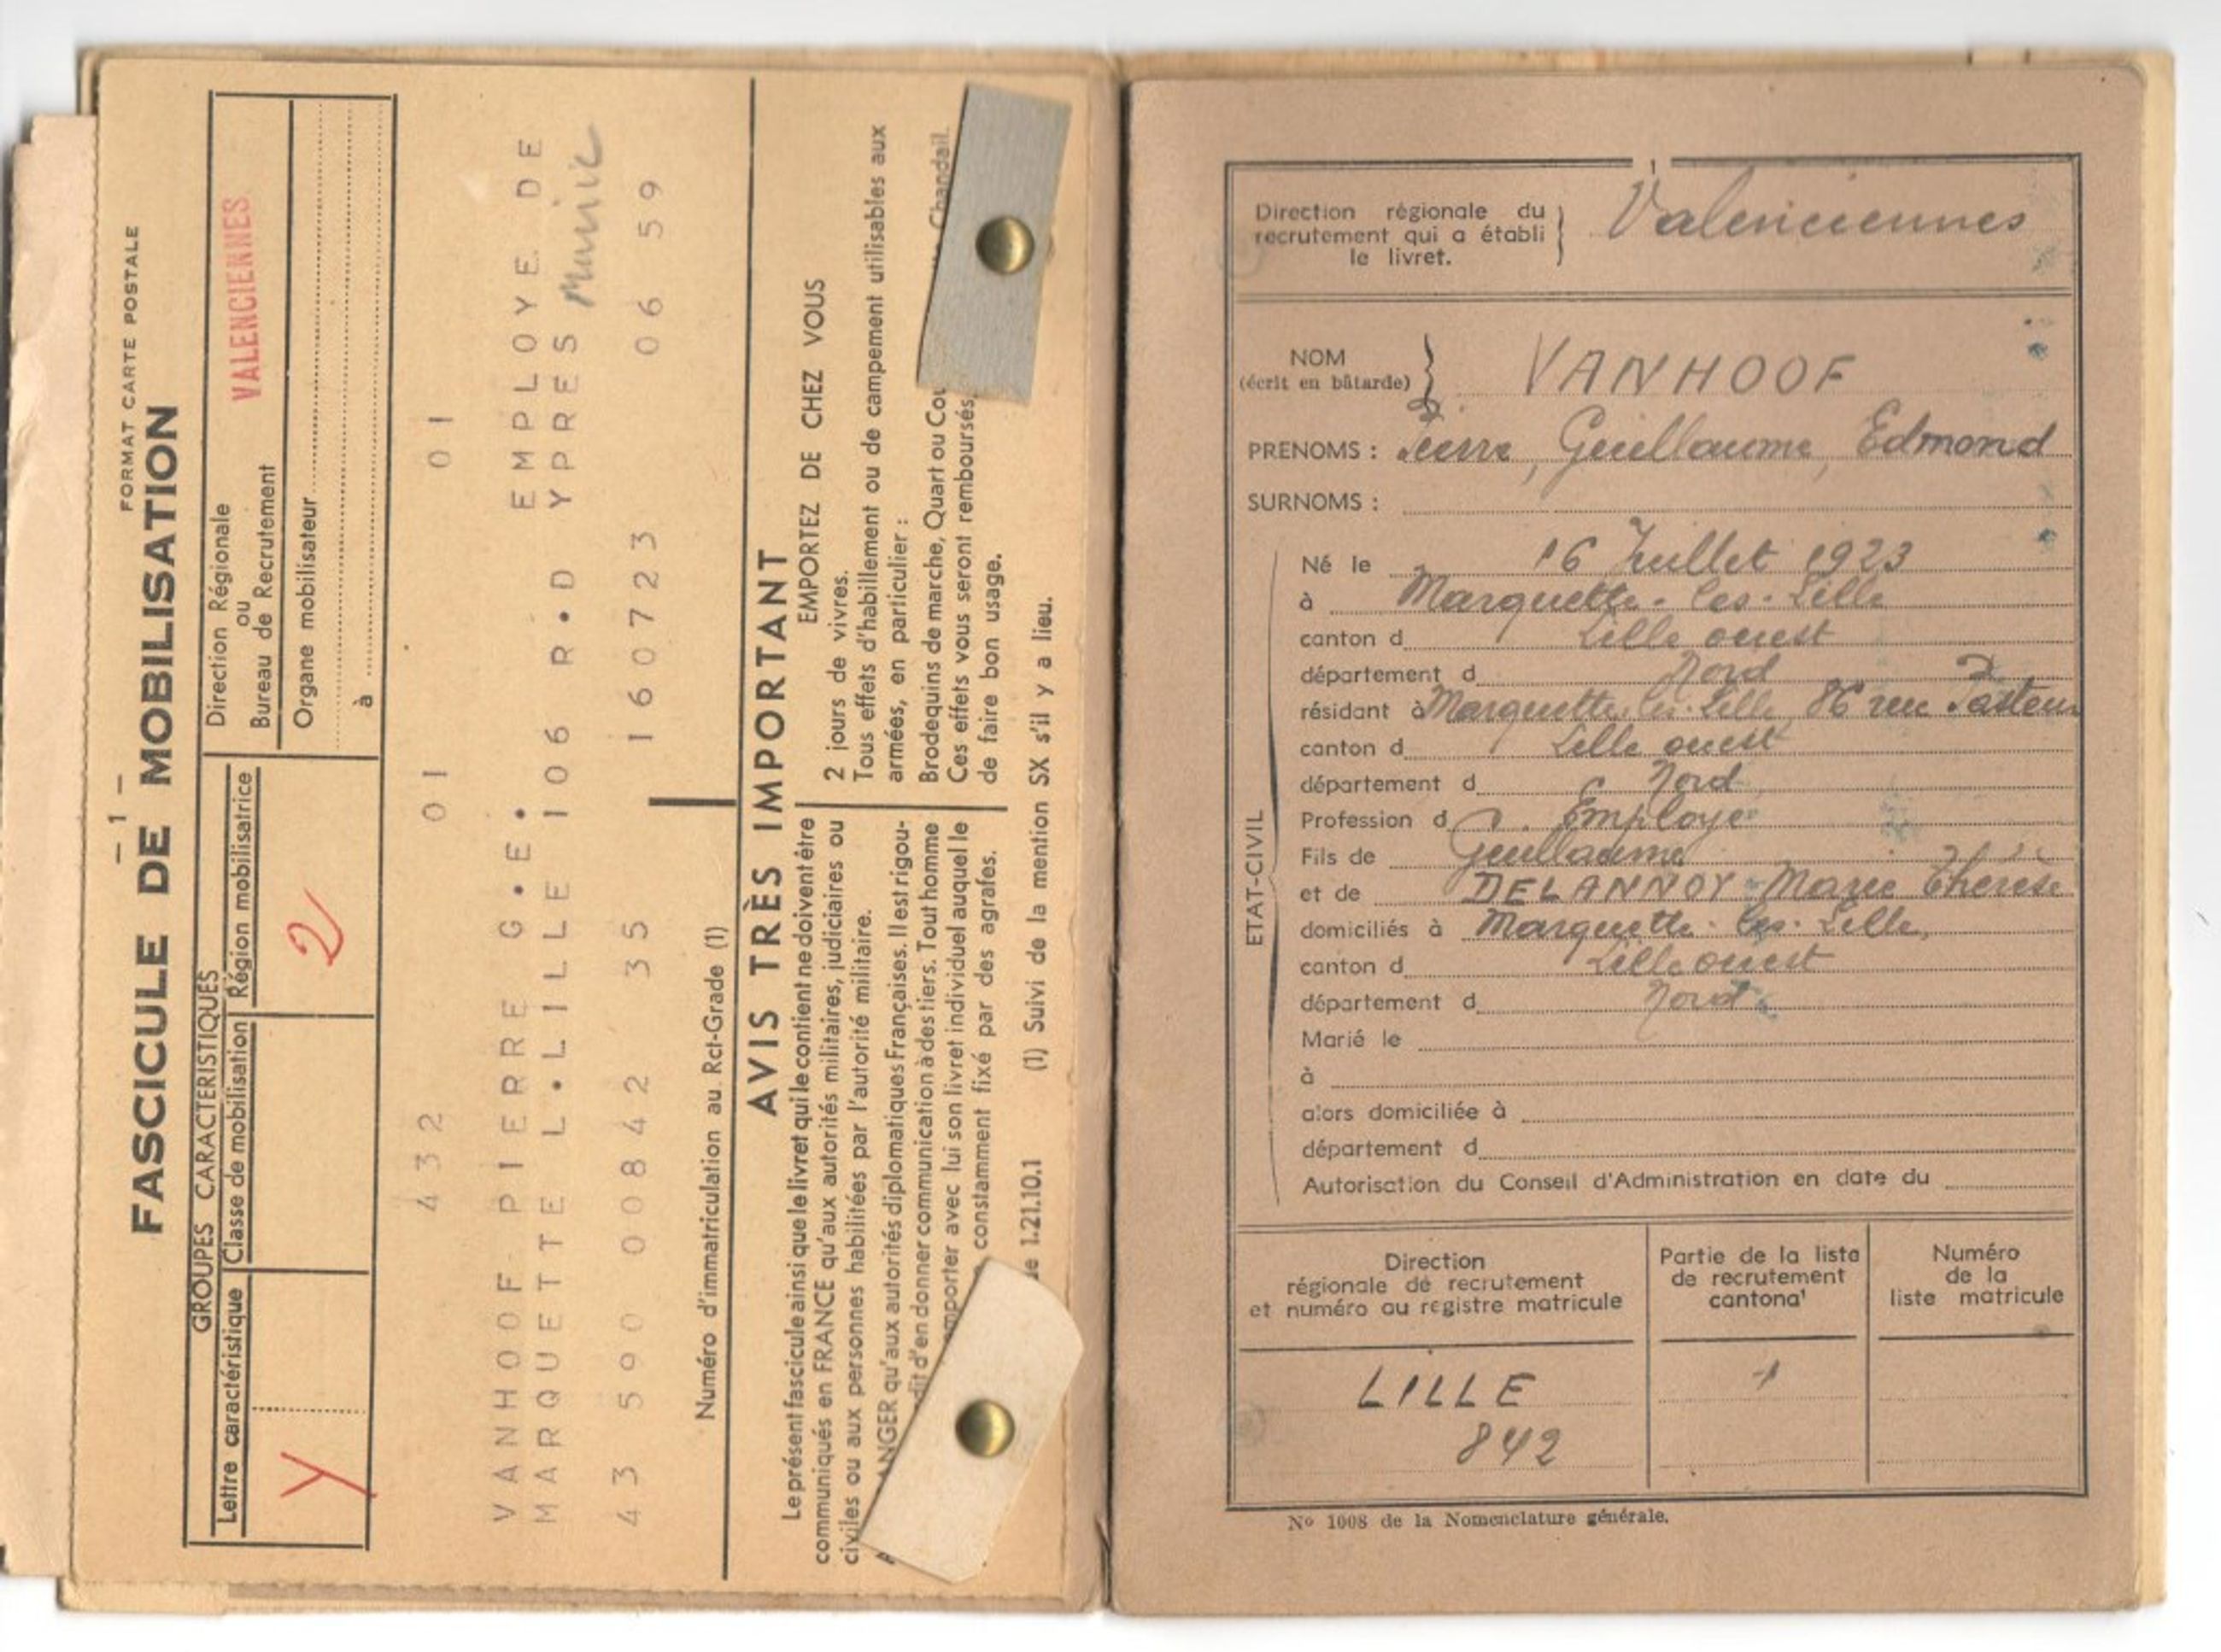 – 1 –
FORMAT CARTE POSTALE
FASCICULE DE MOBILISATION
GROUPES CARACTERISTIQUES
Lettre caractéristique
Classe de mobilisation
Région mobilisatrice
Y
2
Direction Régionale
ou
Bureau de Recrutement
VALENCIENNES
Organe mobilisateur
à
432 01 01
VANHOOF PIERRE G.E. EMPLOYE DE
MARQUETTE L.LILLE 106 R.D YPRES
43 590 00842 35 160723 06 59
Numéro d'immatriculation au Rct-Grade (1)
AVIS TRÈS IMPORTANT
Le présent fascicule ainsi que le livret qui le contient ne doivent être
communiqués en FRANCE qu'aux autorités militaires, judiciaires ou
civiles ou aux personnes habilitées par l'autorité militaire.
A ANGER qu'aux autorités diplomatiques Françaises. Il est rigou-
dit d'en donner communication à des tiers. Tout homme
emporter avec lui son livret individuel auquel le
constamment fixé par des agrafes.
EMPORTEZ DE CHEZ VOUS
2 jours de vivres.
Tous effets d'habillement ou de campement utilisables aux
armées, en particulier :
Brodequins de marche, Quart ou Cou Chandail.
Ces effets vous seront remboursés,
de faire bon usage.
ue 1.21.10.1
(1) Suivi de la mention SX s'il y a lieu.
1
Direction régionale du
recrutement qui a établi
le livret.
Valenciennes
NOM
(écrit en bâtarde)
VANHOOF
PRENOMS : Pierre, Guillaume, Edmond
SURNOMS :
ETAT-CIVIL
Né le 16 Juillet 1923
à Marquette-les-Lille
canton d Lille ouest
département d Nord
résidant à Marquette-les-Lille, 86 rue Pasteur
canton d Lille ouest
département d Nord
Profession d Employé
Fils de Guillaume
et de DELANNOY Marie Thérèse
domiciliés à Marquette-les-Lille,
canton d Lille ouest
département d Nord
Marié le
à
alors domiciliée à
département d
Autorisation du Conseil d'Administration en date du
Direction
régionale de recrutement
et numéro au registre matricule
Partie de la liste
de recrutement
cantonal
Numéro
de la
liste matricule
LILLE
842
1
Nº 1008 de la Nomenclature générale.